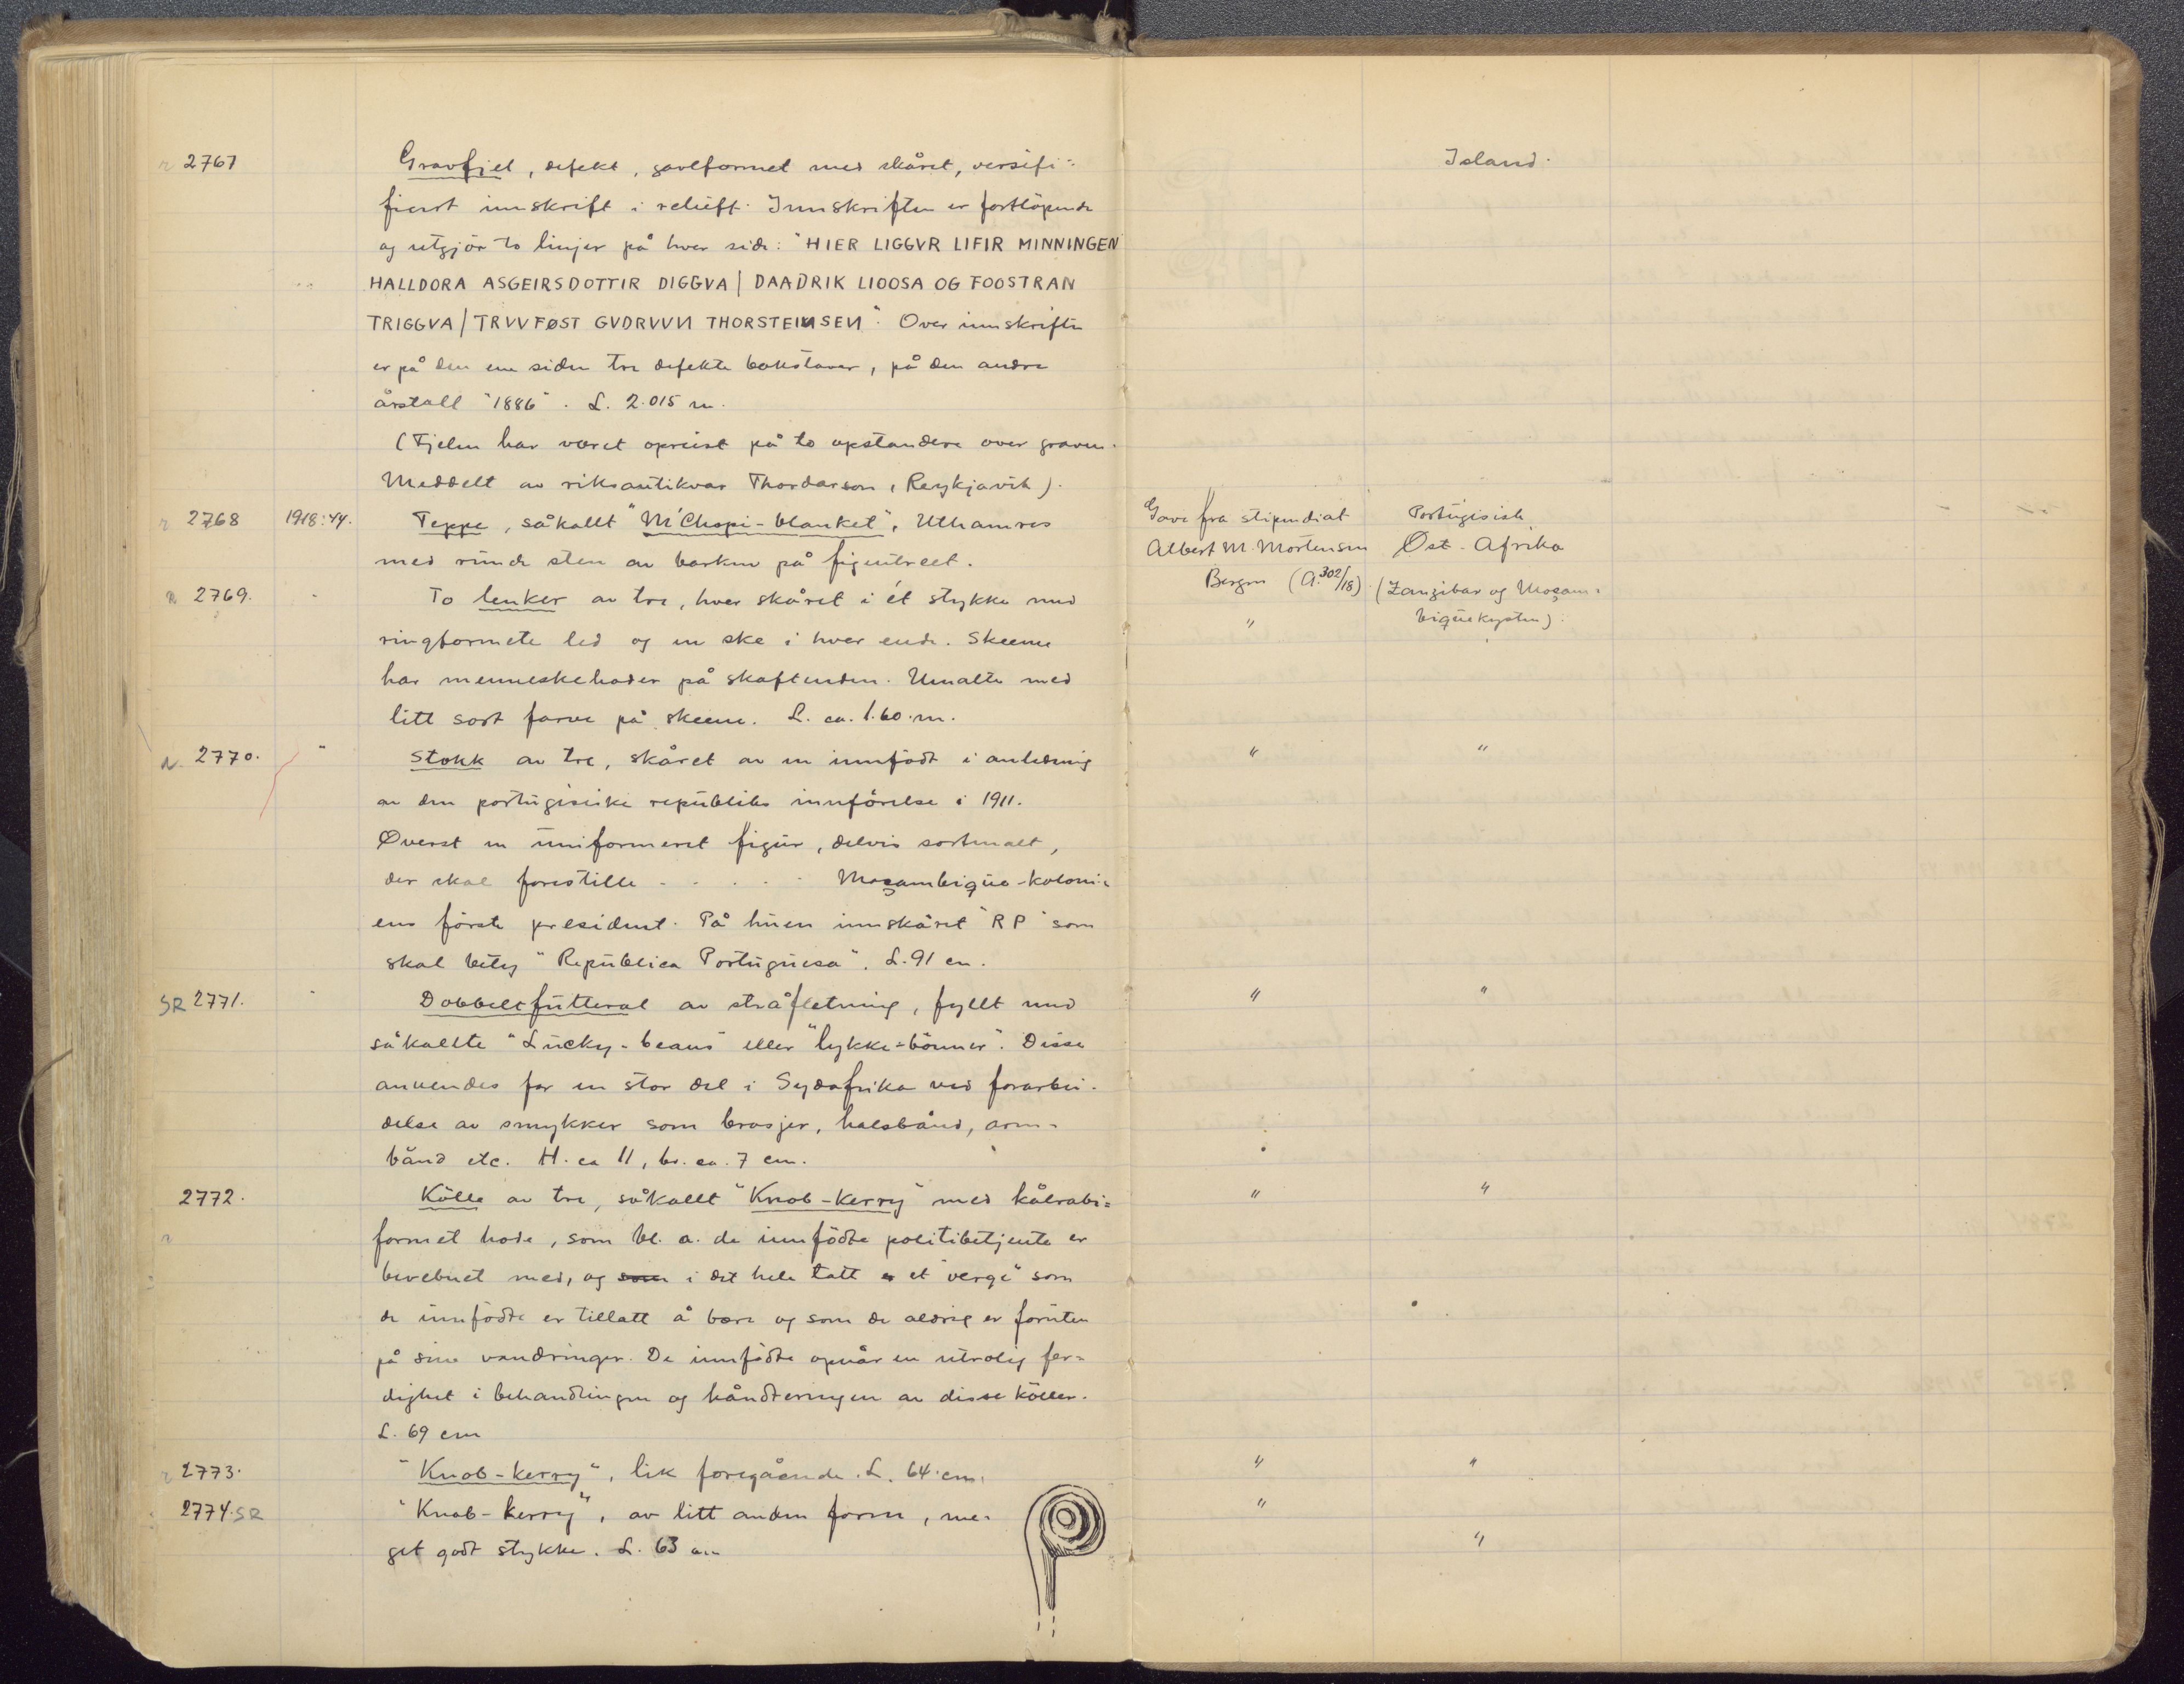 r 2767 Gravfjel, defekt, gavlformet med skåret, versifi-
Island.
fiert innskrift i relieff. Innskriften er fortlöpende
og utgjör to linjer på hver side: "HIER LIGGVR LIFIR MINNINGEN
HALLDORA ASGEIRSDOTTIR DIGGVA | DAADRIK LIOOSA OG FOOSTRAN
TRIGGVA | TRVVFØST GVDRVVN THORSTEINSEN". Over innskriften
er på den ene siden tre defekte bokstaver, på den andre
årstall "1886". L. 2.015 m.
(Fjelen har været opreist på to opstandere over graven.
Meddelt av riksantikvar Thordarson, Reykjavik).
r 2768 1918:44. Teppe, såkallt "M'Chopi-blanket", Uthamres
Gave fra stipendiat Portugisisk
med runde sten av barken på figentreet.
Albert M. Mortensen Øst-Afrika
r 2769. " To lenker av tre, hver skåret i ét stykke med
Bergen (A. 302/18) (Zanzibar og Moçam-
ringformete led og en ske i hver ende. Skeene
" biquekysten).
har menneskehoder på skaftenden. Umalte med
litt sort farve på skeene. L. ca. 1.60 m.
r 2770. " Stokk av tre, skåret av en innfödt i anledning
" "
av den portugisiske republiks innförelse i 1911.
Øverst en uniformeret figur, delvis sortmalt,
der skal forestille . . . . . Moçambique-koloni-
ens förste president. På huen innskåret "RP" som
skal bety "Republica Portuguesa". L. 91 cm.
SR 2771. " Dobbeltfutteral av stråfletning, fyllt med
" "
såkallte "Lucky-beans" eller "lykke-bönner". Disse
anvendes for en stor del i Sydafrika ved forarbei-
delse av smykker som brosjer, halsbånd, arm-
bånd etc. H. ca 11, br. ca. 7 cm.
2772. Kölle av tre, såkallt "Knob-Kerry" med kålrabi-
" "
r formet hode, som bl. a. de innfödte politibetjente er
bevebnet med, og som i det hele tatt er et "verge" som
de innfödte er tillatt å bære og som de aldrig er foruten
på sine vandringer. De innfödte opnår en utrolig fer-
dighet i behandlingen og håndteringen av disse köller.
L. 69 cm
r 2773. "Knob-kerry", lik foregående. L. 64 cm.
" "
2774. SR "Knob-kerry", av litt anden form, me-
"
get godt stykke. L. 63 cm
"